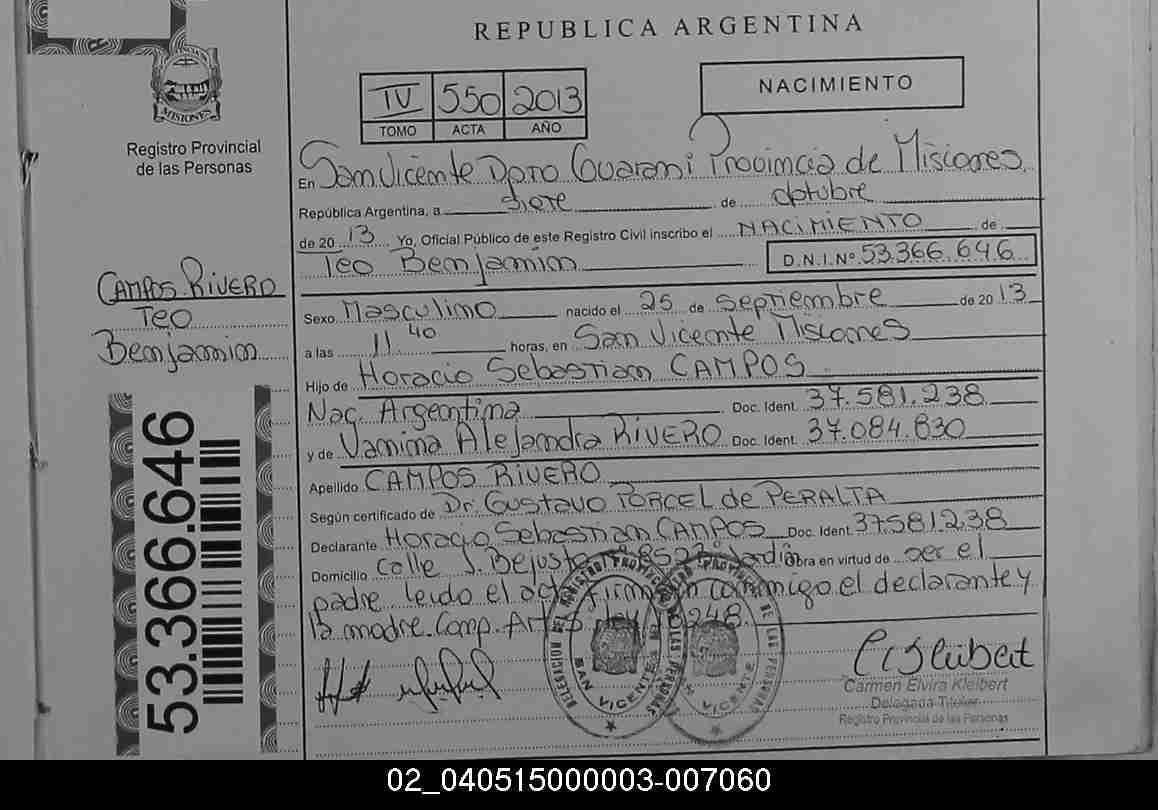 REPUBLICA ARGENTINA
MISIONES
Registro Provincial
de las Personas
IV 550 2013
TOMO ACTA AÑO
NACIMIENTO
En San Vicente Dpto Guarani Provincia de Misiones
República Argentina, a siete de octubre
de 20 13 Yo, Oficial Público de este Registro Civil inscribo el NACIMIENTO de
Teo Benjamin D.N.I.Nº 53.366.646
CAMPOS RIVERO
TEO
Benjamin
Sexo Masculino nacido el 25 de septiembre de 20 13
a las 11 40 horas, en San Vicente Misiones
Hijo de Horacio Sebastian CAMPOS
Nac. Argentina Doc. Ident. 37.581.238
y de Vanina Alejandra RIVERO Doc. Ident. 37.084.830
Apellido CAMPOS RIVERO
Según certificado de Dr. GUSTAVO PORCEL de PERALTA
Declarante Horacio Sebastian CAMPOS Doc. Ident. 37581.238
Domicilio calle J. Bejuste Jardin obra en virtud de ser el
padre leido el acta firman conmigo el declarante y
la madre. Comp. Art ley 18248
53.366.646
SAN VICENTE
Carmen Elvira Kleibert
Delegada Titular
Registro Provincial de las Personas
02_040515000003-007060